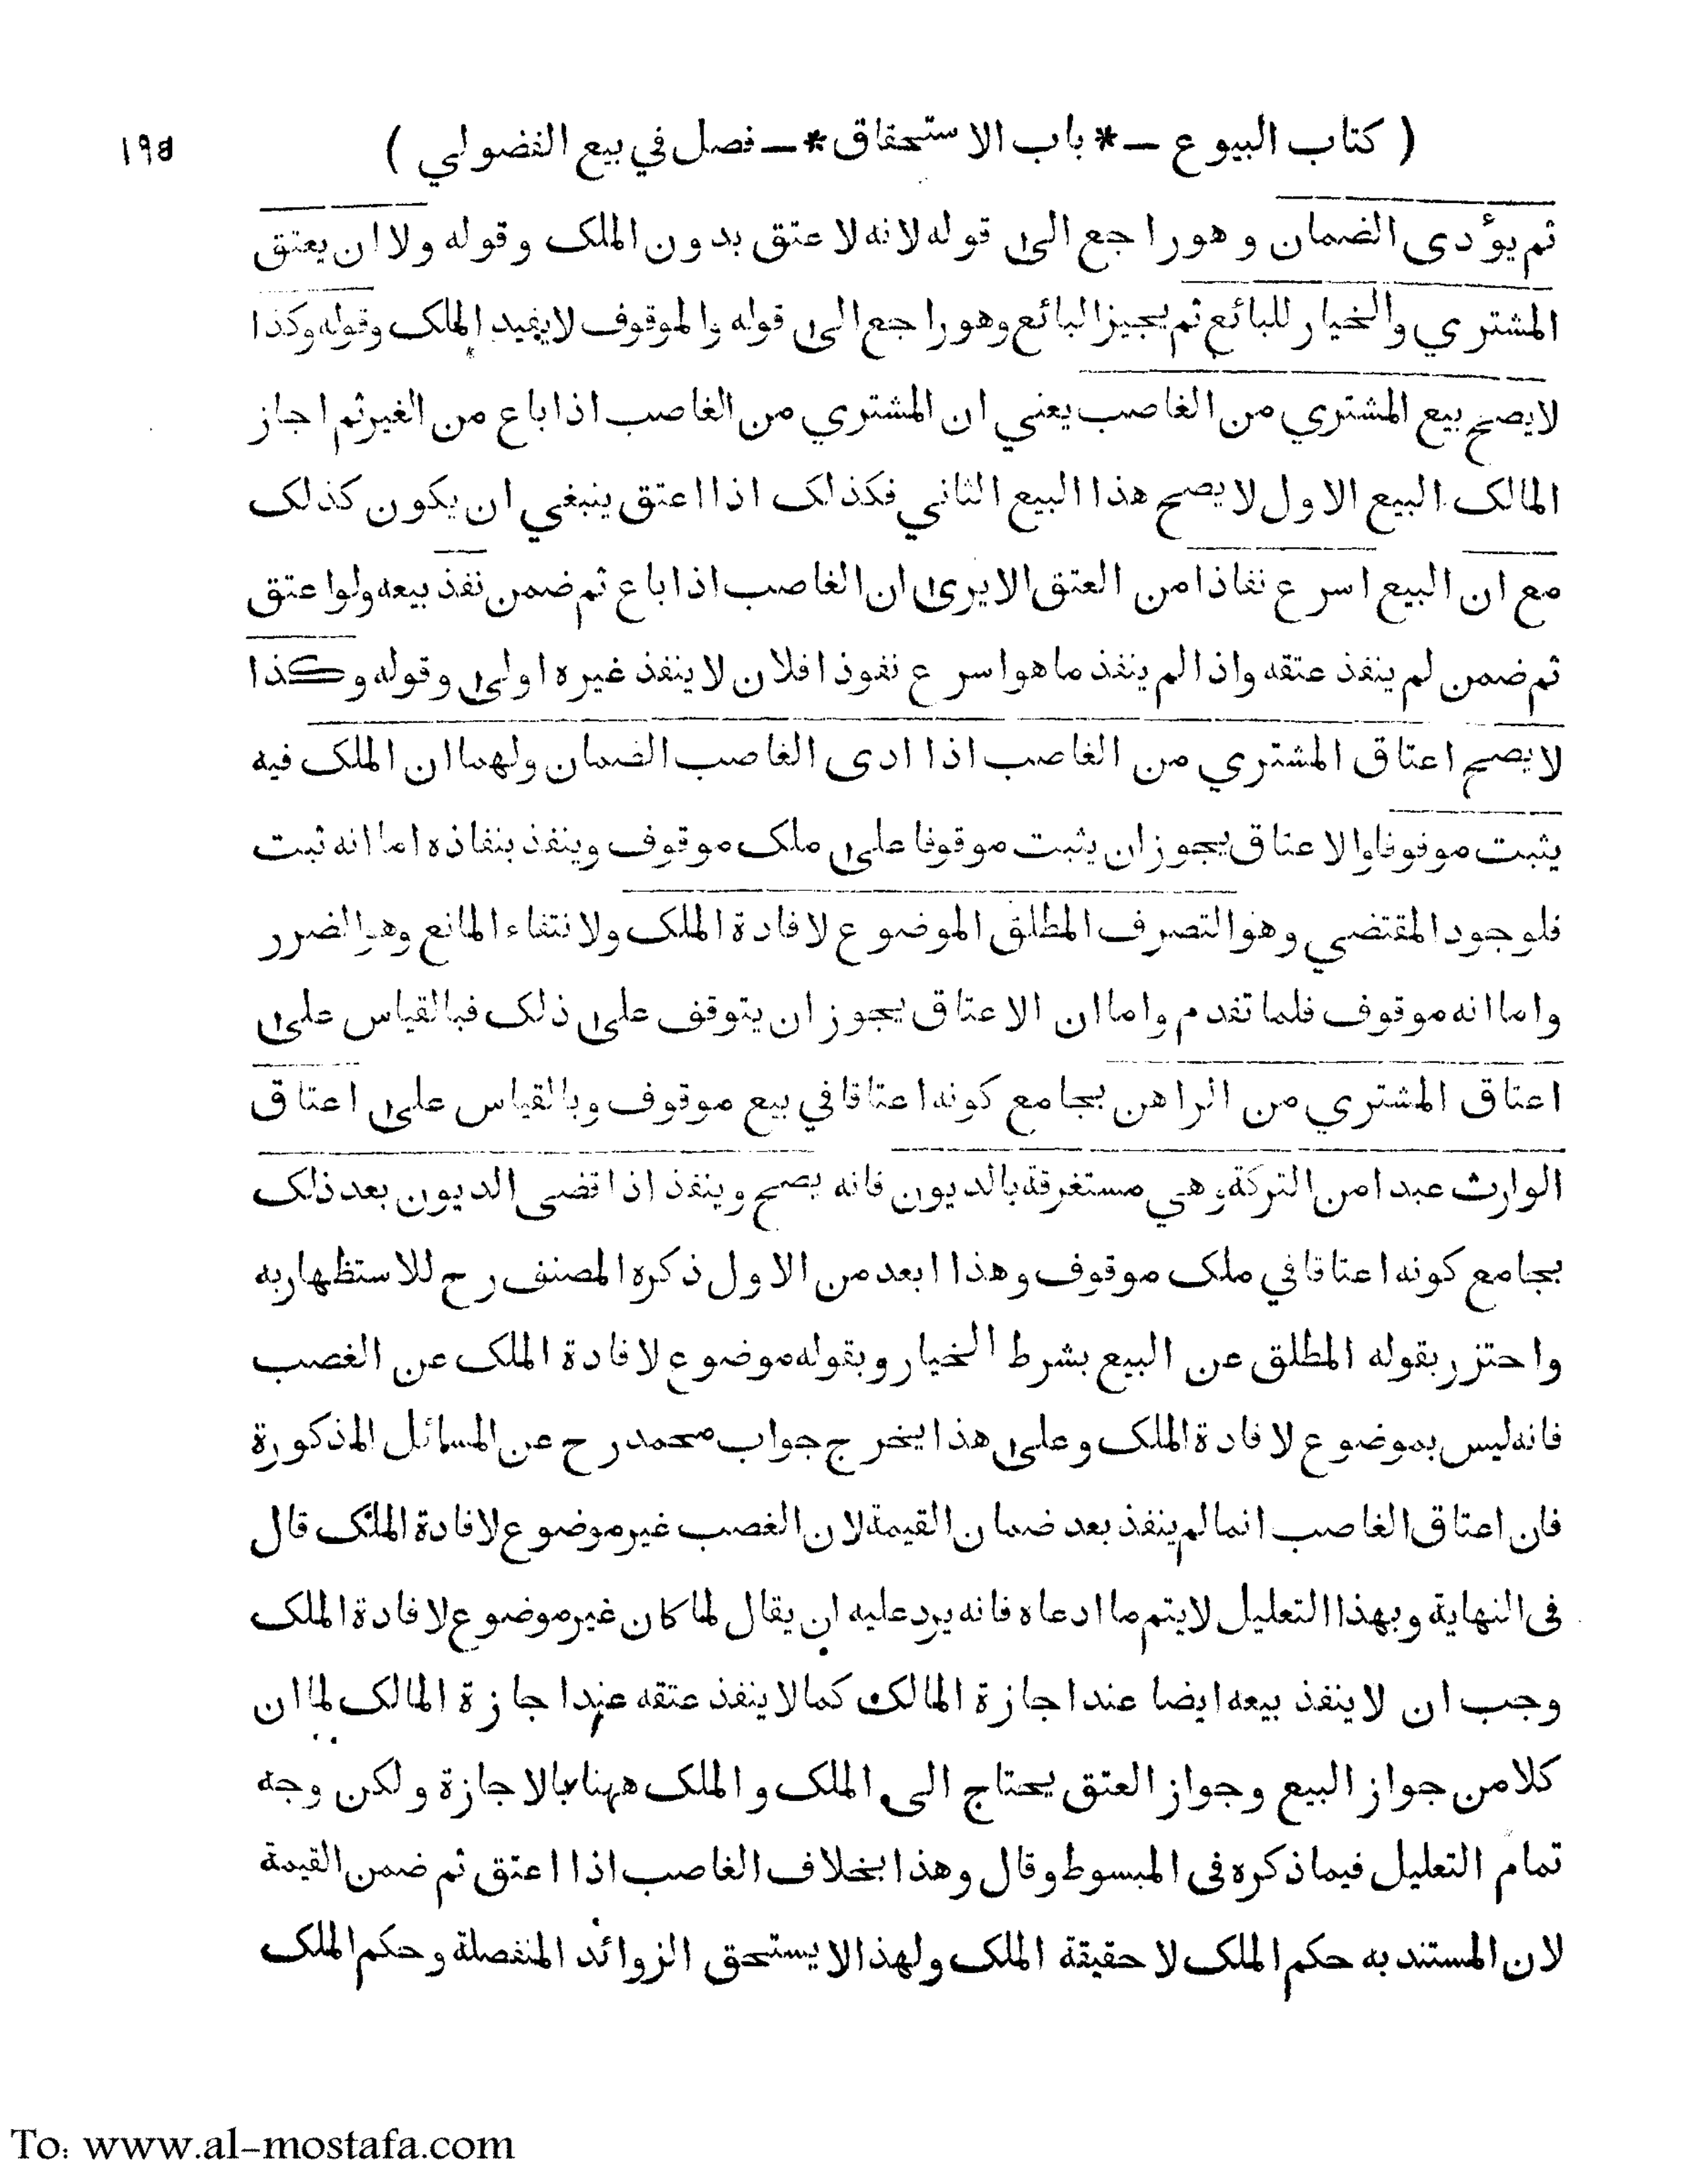 ( كتاب البيوع — * باب الاستحقاق * — فصل في بيع الفضولي )
١٩٥
ثم يؤدى الضمان وهو راجع الى قوله لانه لا عتق بدون الملك وقوله ولا ان يعتق
المشتري والخيار للبائع ثم يجيز البائع وهو راجع الى قوله والموقوف لا يفيد الملك وقوله وكذا
لا يصح بيع المشتري من الغاصب يعني ان المشتري من الغاصب اذا باع من الغير ثم اجاز
المالك البيع الاول لا يصح هذا البيع الثاني فكذلك اذا اعتق ينبغي ان يكون كذلك
مع ان البيع اسرع نفاذا من العتق الا يرى ان الغاصب اذا باع ثم ضمن نفذ بيعه ولو اعتق
ثم ضمن لم ينفذ عتقه واذا لم ينفذ ما هو اسرع نفوذا فلان لا ينفذ غيره اولى وقوله وكذا
لا يصح اعتاق المشتري من الغاصب اذا ادى الغاصب الضمان ولهما ان الملك فيه
يثبت موقوفا والاعتاق يجوز ان يثبت موقوفا على ملك موقوف وينفذ بنفاذه اما انه ثبت
فلوجود المقتضي وهو التصرف المطلق الموضوع لافادة الملك ولانتفاء المانع وهو الضرر
واما انه موقوف فلما تقدم واما ان الاعتاق يجوز ان يتوقف على ذلك فبالقياس على
اعتاق المشتري من الراهن بجامع كونه اعتاقا في بيع موقوف وبالقياس على اعتاق
الوارث عبدا من التركة وهي مستغرقة بالديون فانه يصح وينفذ اذا قضى الديون بعد ذلك
بجامع كونه اعتاقا في ملك موقوف وهذا ابعد من الاول ذكره المصنف رح للاستظهار به
واحترز بقوله المطلق عن البيع بشرط الخيار وبقوله موضوع لافادة الملك عن الغصب
فانه ليس بموضوع لافادة الملك وعلى هذا يخرج جواب محمد رح عن المسائل المذكورة
فان اعتاق الغاصب انما لم ينفذ بعد ضمان القيمة لان الغصب غير موضوع لافادة الملك قال
فى النهاية وبهذا التعليل لا يتم ما ادعاه فانه يرد عليه ان يقال لما كان غير موضوع لافادة الملك
وجب ان لا ينفذ بيعه ايضا عند اجازة المالك كما لا ينفذ عتقه عند اجازة المالك لما ان
كلا من جواز البيع وجواز العتق يحتاج الى الملك و الملك ههنا بالاجازة ولكن وجه
تمام التعليل فيما ذكره فى المبسوط وقال وهذا بخلاف الغاصب اذا اعتق ثم ضمن القيمة
لان المستند به حكم الملك لا حقيقة الملك ولهذا لا يستحق الزوائد المنفصلة وحكم الملك
To: www.al-mostafa.com